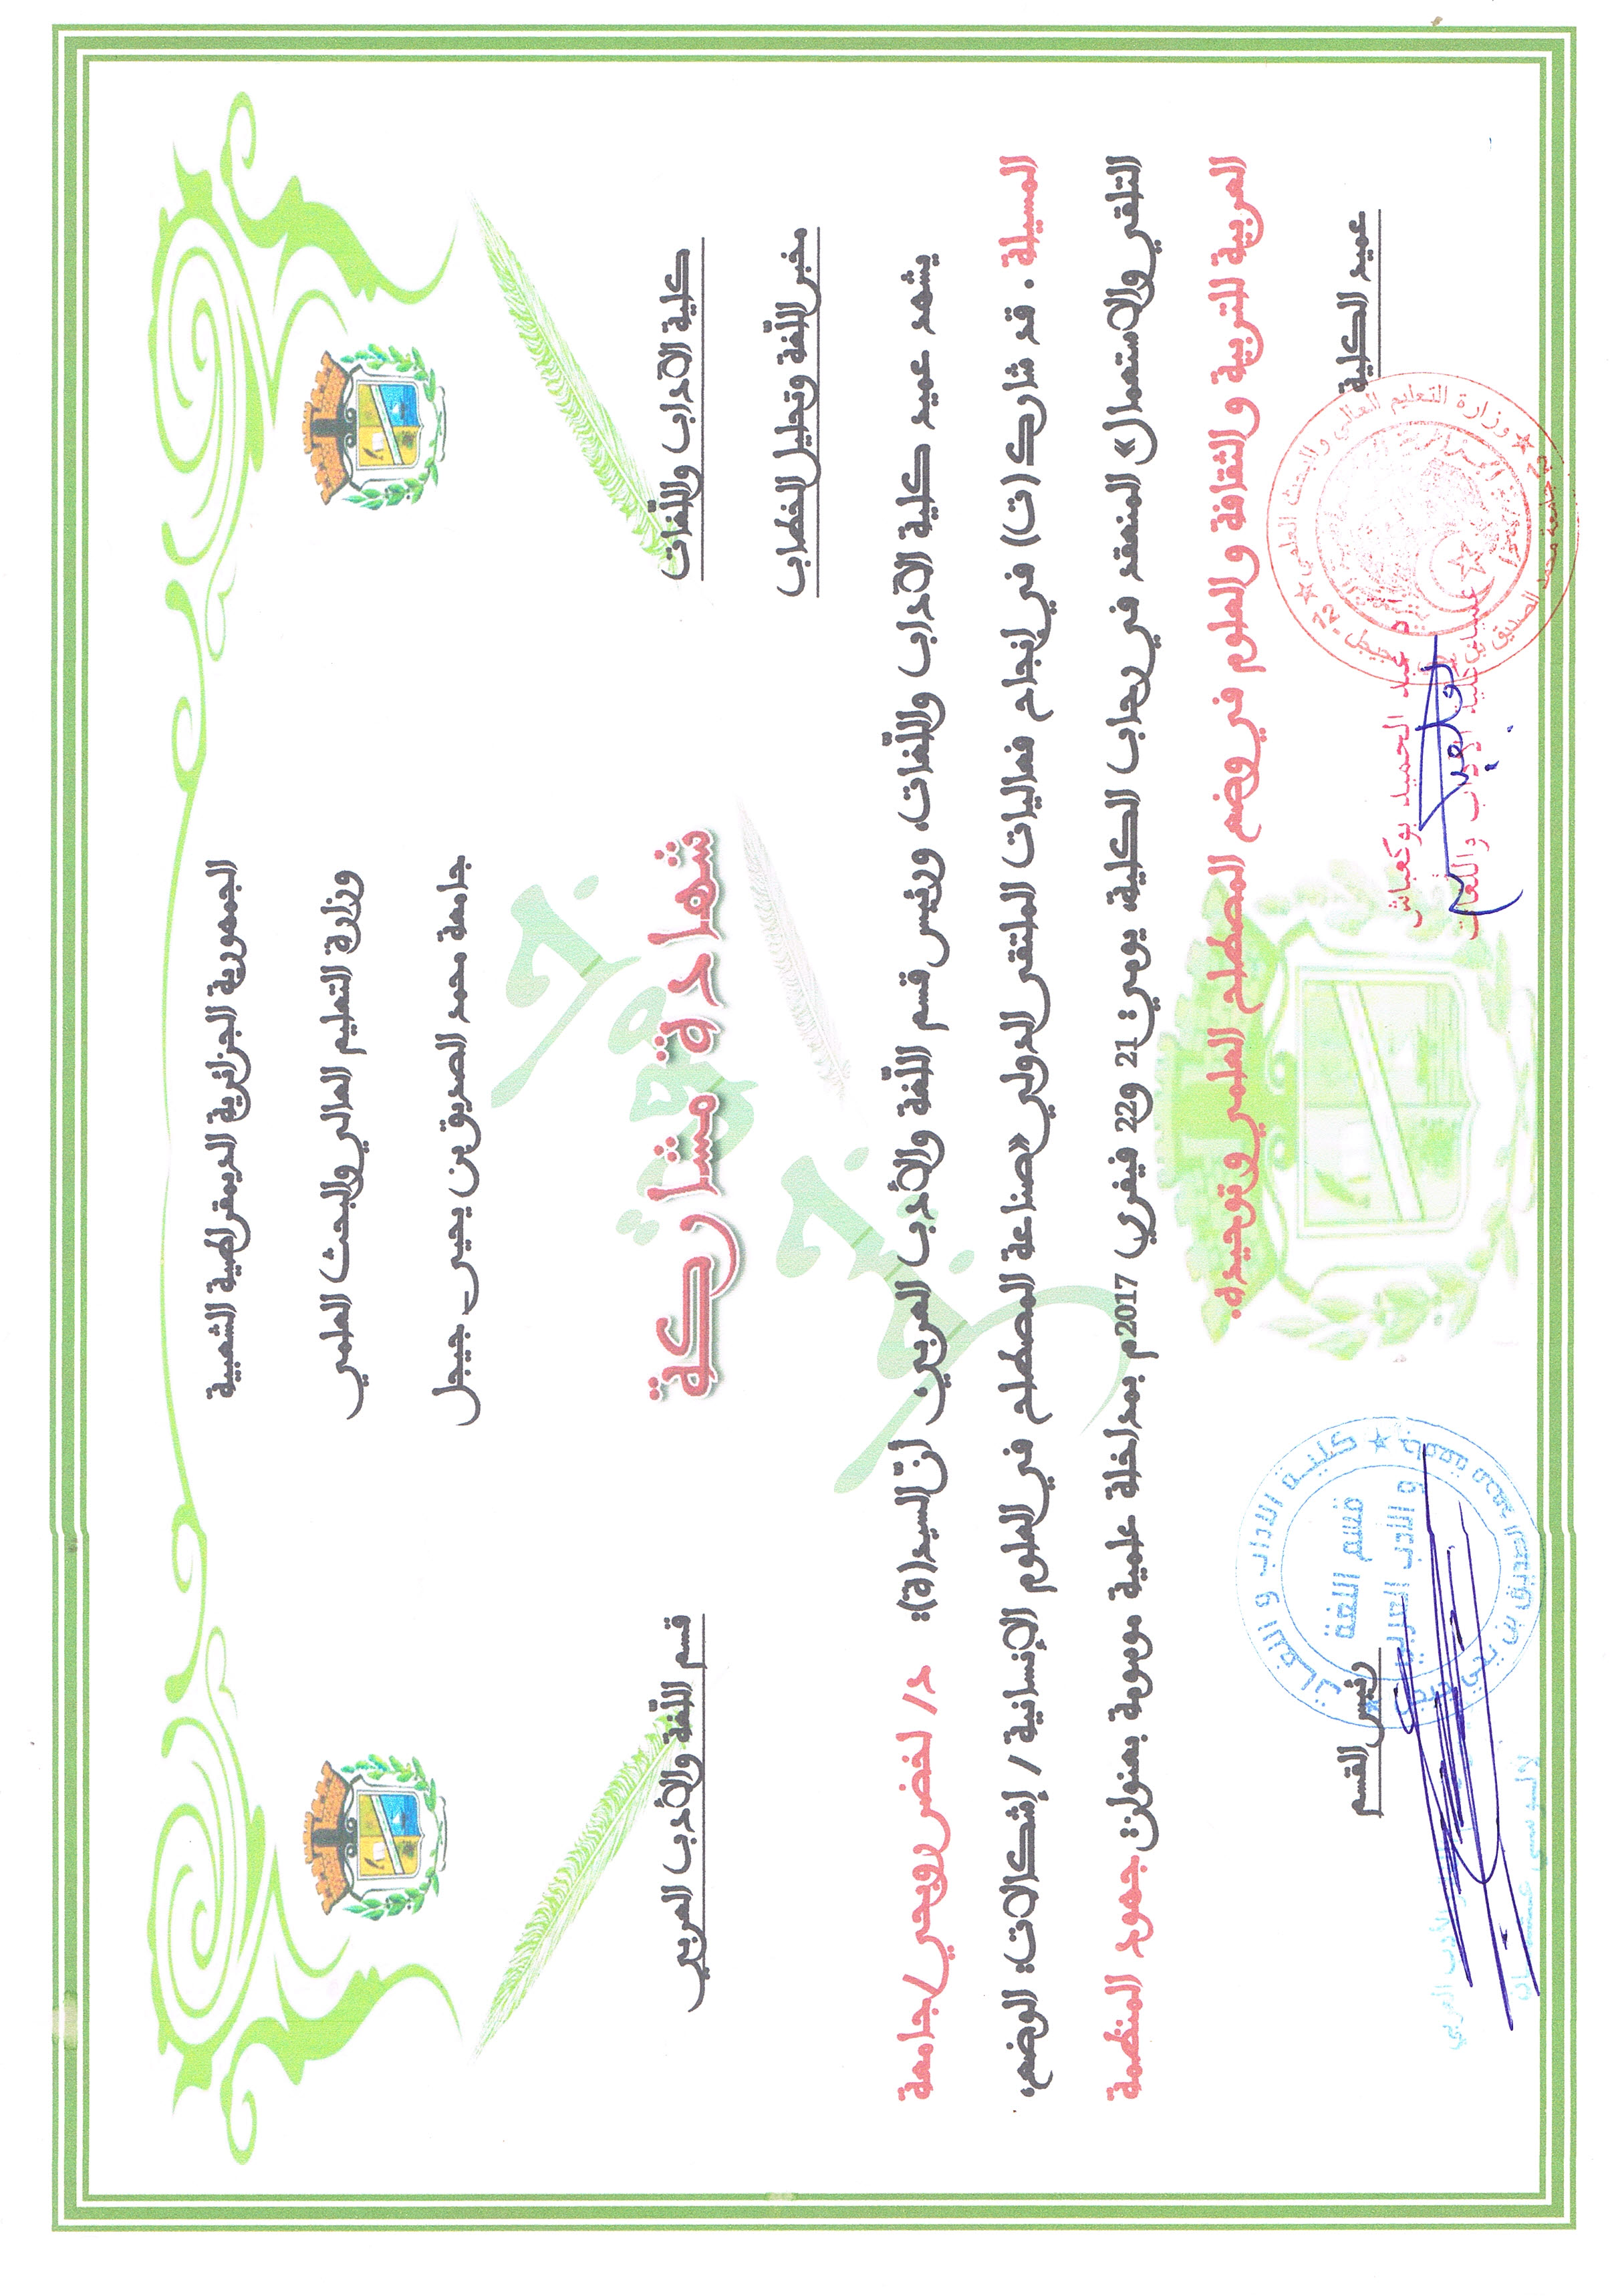 الجمهورية الجزائرية الديمقراطية الشعبية
وزارة التعليم العالي والبحث العلمي
جامعة محمد الصديق بن يحيى جيجل
كلية الآداب واللّغات
قسم اللّغة والأدب العربي
مخبر اللّغة وتحليل الخطاب
شهادة مشاركة
يشهد عميد كلية الآداب واللّغات، ورئيس قسم اللّغة والأدب العربي، أنّ السيد(ة): د / لخضر رويحي/ جامعة
المسيلة . قد شارك (ت) في إنجاح فعاليات الملتقى الدولي «صناعة المصطلح في العلوم الإنسانية / إشكالات: الوضع،
التلقي والاستعمال» المنعقد في رحاب الكلية، يومي: 21 و22 فيفري 2017م بمداخلة علمية موسومة بعنوان: جهود المنظمة
العربية للتربية والثقافة والعلوم في وضع المصطلح العلمي وتوحيده.
عميد الكلية
رئيس القسم
وزارة التعليم العالي والبحث العلمي
جامعة محمد الصديق بن جيجل
عبد الحميد بوكعباش
الآداب واللغات
كلية الآداب و اللغات
قسم اللغة
و الأدب العربي